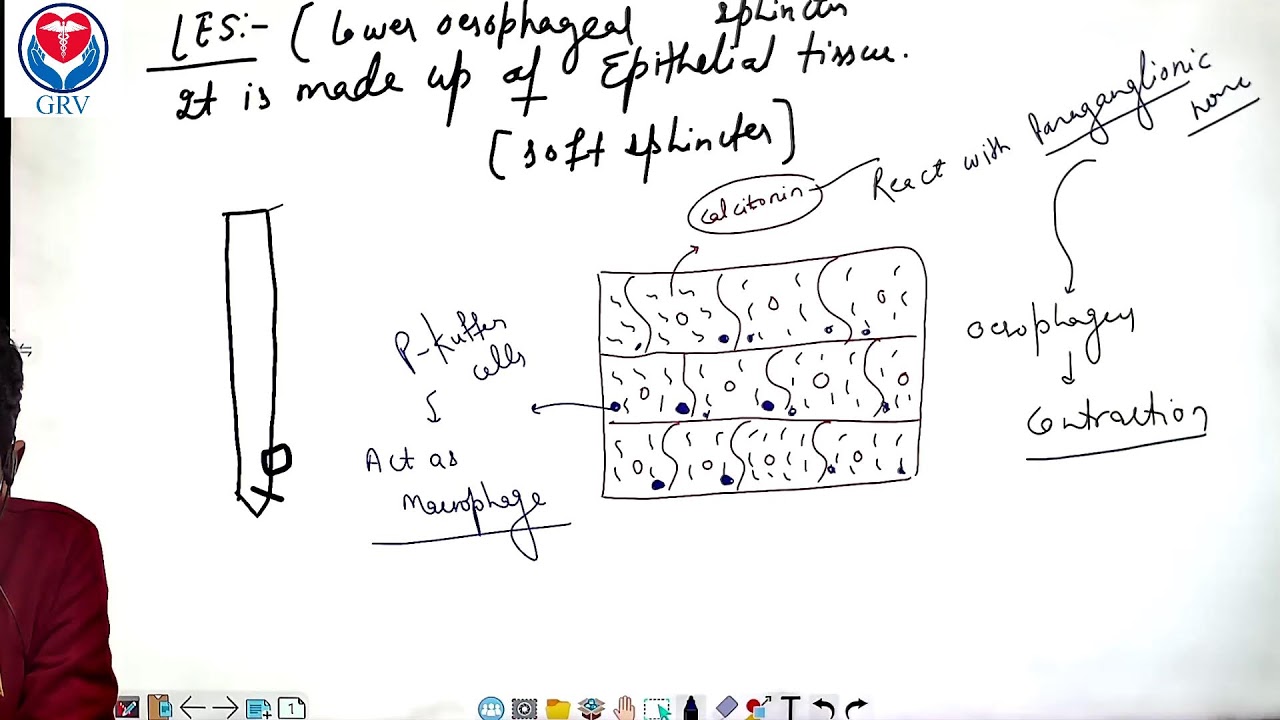 GRV
LES:- (Lower oesophageal sphincter
It is made up of Epithelial tissue.
[soft sphincter]
calcitonin
React with Paraganglionic
P-kuffer
cells
Act as
Macrophage
Contraction
1
T